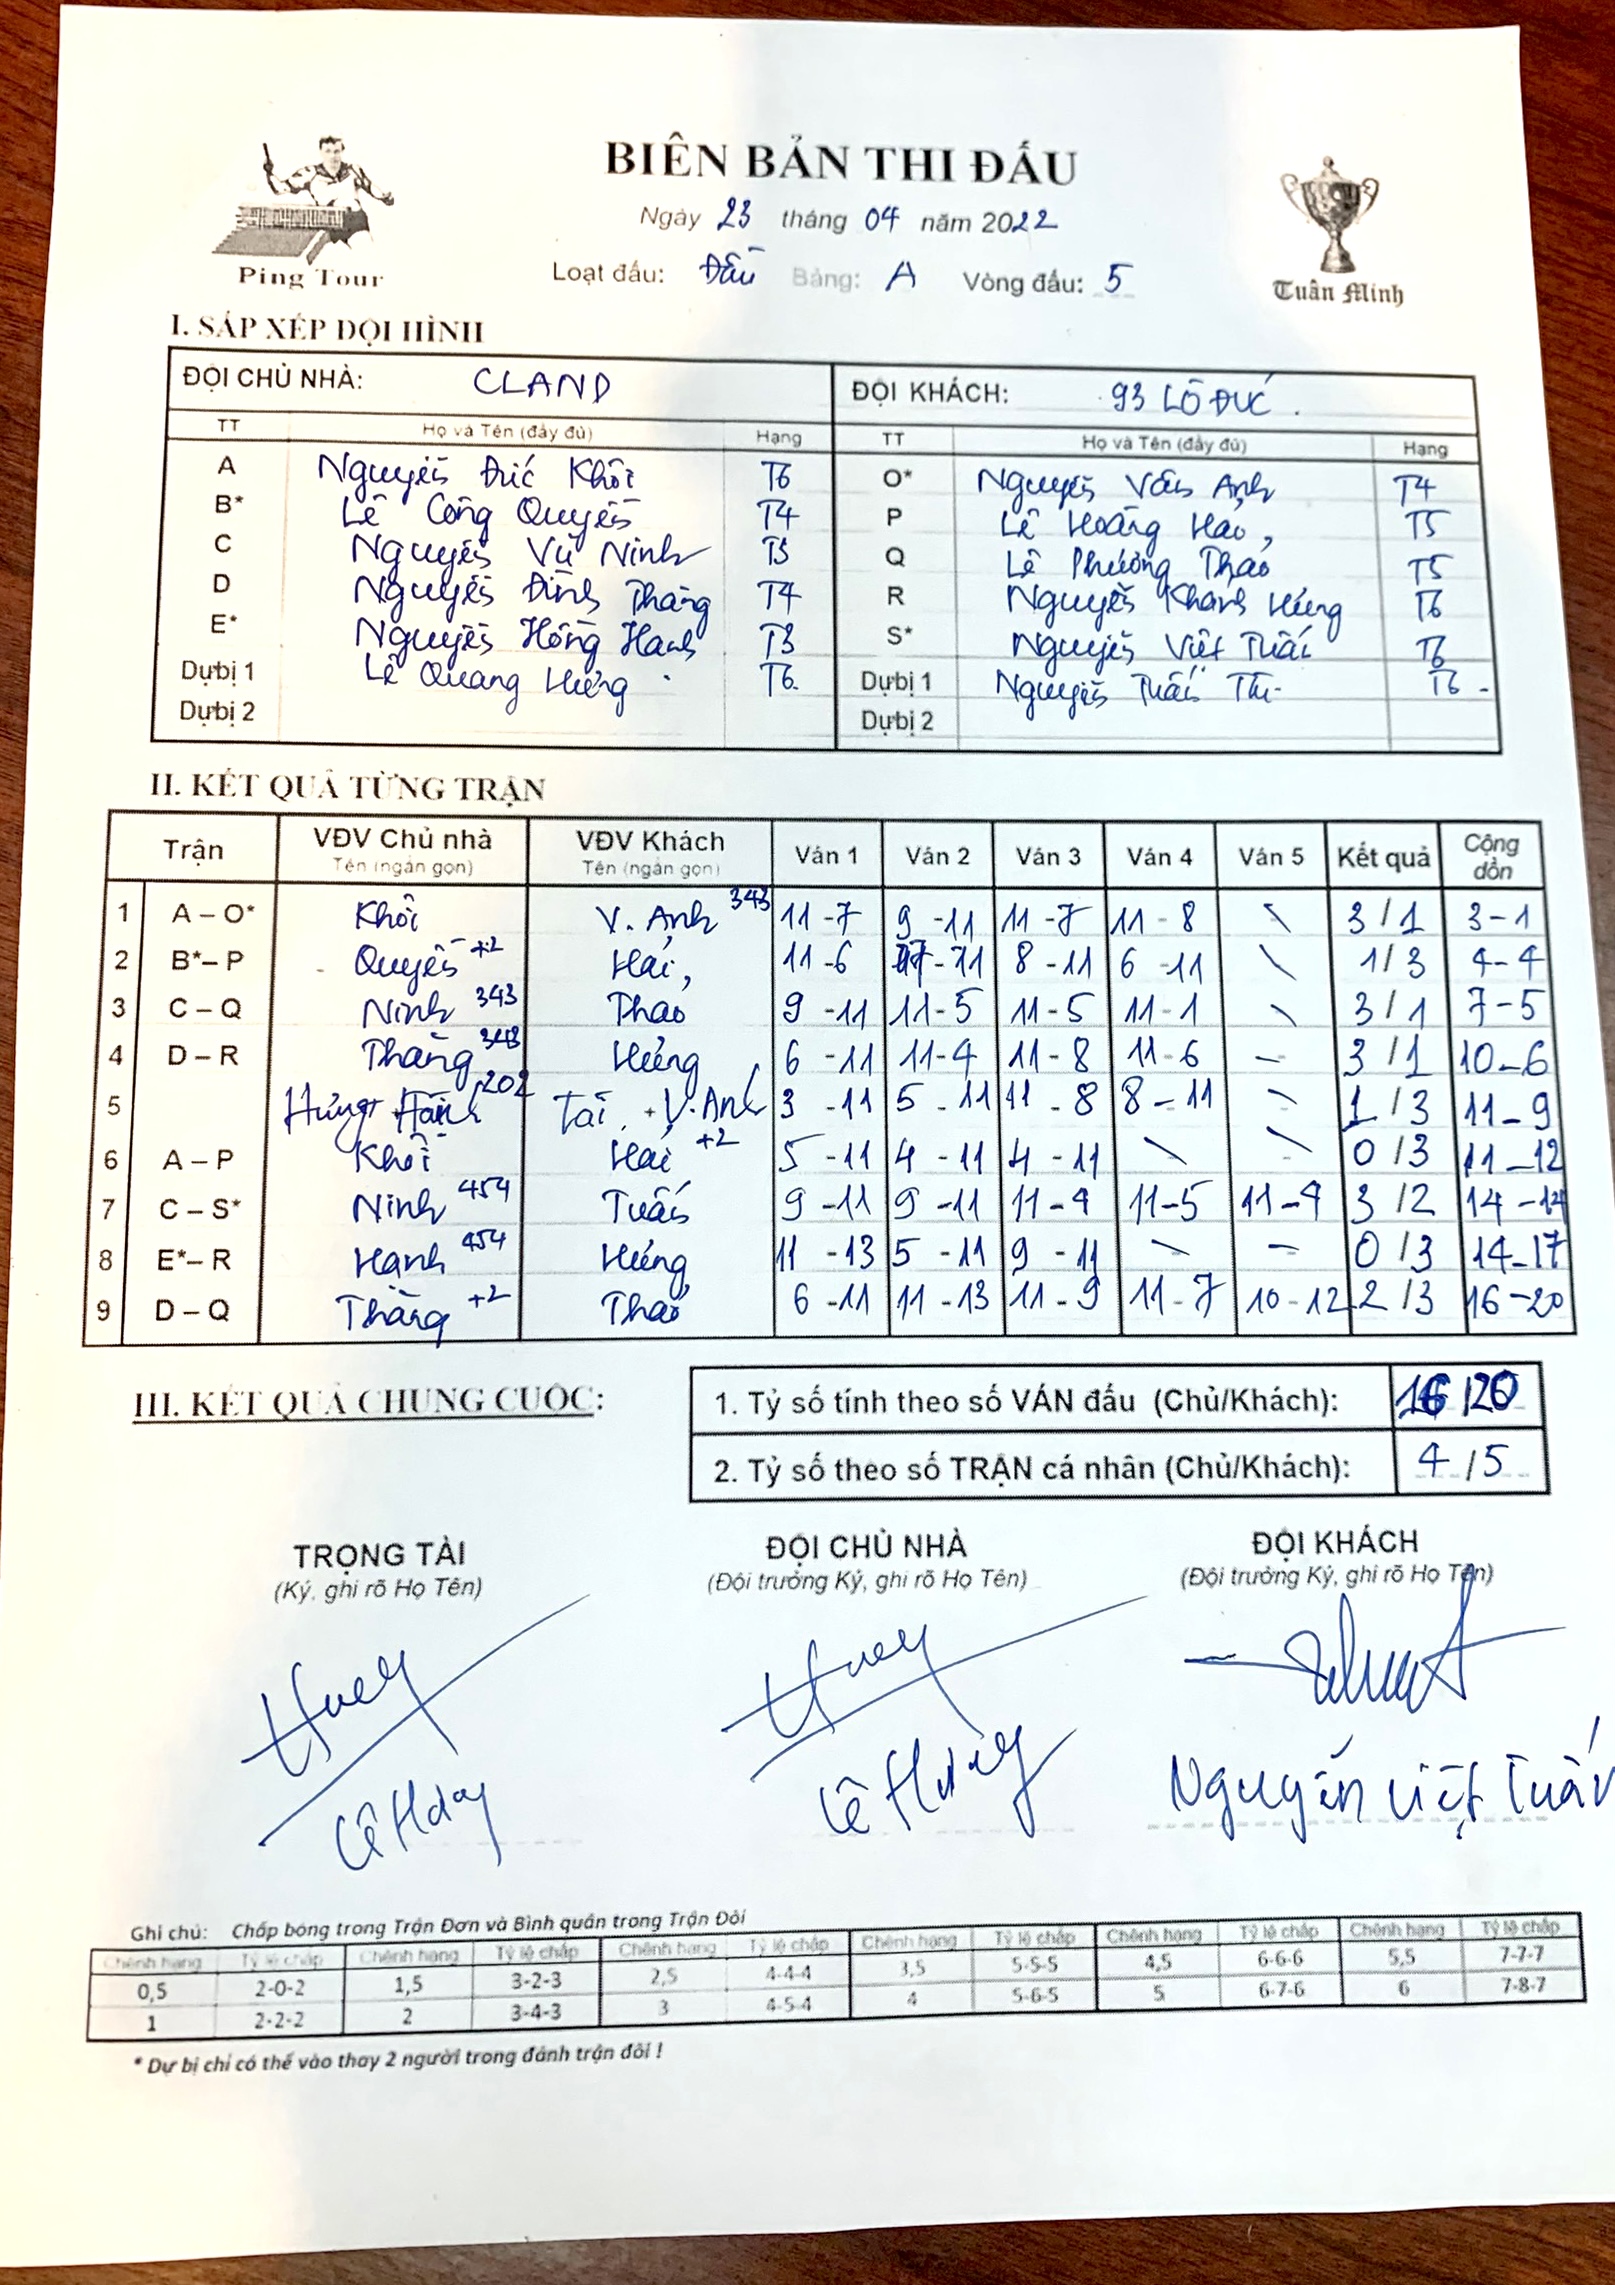 BIÊN BẢN THI ĐẤU
Ngày 23 tháng 04 năm 2022
Ping Tour
Loạt đấu: Đầu Bảng: A Vòng đấu: 5
Tuấn Minh
I. SẮP XẾP ĐỘI HÌNH
ĐỘI CHỦ NHÀ: CLAND ĐỘI KHÁCH: 93 LÒ ĐÚC.
TT Họ và Tên (đầy đủ) Hạng TT Họ và Tên (đầy đủ) Hạng
A Nguyễn Đức Khôi T6 O* Nguyễn Vân Anh T4
B* Lê Công Quyền T4 P Lê Hoàng Hải T5
C Nguyễn Vũ Ninh Q Lê Phương Thảo T5
D Nguyễn Đình Thắng T4 R Nguyễn Khánh Hưng T6
E* Nguyễn Hồng Hạnh T3 S* Nguyễn Việt Tuấn T6
Dự bị 1 Lê Quang Hưng T6. Dự bị 1 Nguyễn Tuấn T6 -
Dự bị 2 Dự bị 2
II. KẾT QUẢ TỪNG TRẬN
Trận VĐV Chủ nhà VĐV Khách Ván 1 Ván 2 Ván 3 Ván 4 Ván 5 Kết quả Cộng dồn
Tên (ngắn gọn) Tên (ngắn gọn)
1 A – O* Khôi V. Anh 343 11-7 9-11 11-7 11-8 \ 3/1 3-1
2 B*– P Quyền +2 Hải 11-6 8-11 6-11 \ 1/3 4-4
3 C – Q Ninh 343 Thảo 9-11 11-5 11-5 11-1 \ 3/1 7-5
4 D – R Thắng 343 Hưng 6-11 11-4 11-8 11-6 – 3/1 10-6
5 Hưng+ Hạnh 202 Tài + V.Anh 3-11 5-11 11-8 8-11 – 1/3 11-9
6 A – P Khôi Hải +2 5-11 4-11 4-11 \ \ 0/3 11-12
7 C – S* Ninh 454 Tuấn 9-11 9-11 11-4 11-5 11-9 3/2 14-14
8 E*– R Hạnh 454 Hưng 11-13 5-11 9-11 – – 0/3 14-17
9 D – Q Thắng +2 Thảo 6-11 11-13 11-9 11-7 10-12 2/3 16-20
III. KẾT QUẢ CHUNG CUỘC:
1. Tỷ số tính theo số VÁN đấu (Chủ/Khách): 16/20
2. Tỷ số theo số TRẬN cá nhân (Chủ/Khách): 4/5
TRỌNG TÀI ĐỘI CHỦ NHÀ ĐỘI KHÁCH
(Ký, ghi rõ Họ Tên) (Đội trưởng Ký, ghi rõ Họ Tên) (Đội trưởng Ký, ghi rõ Họ Tên)
Huy Huy
Lê Huy Lê Huy Nguyễn Việt Tuấn
Ghi chú: Chấp bóng trong Trận Đơn và Bình quân trong Trận Đôi
Chênh hạng Tỷ lệ chấp Chênh hạng Tỷ lệ chấp Chênh hạng Tỷ lệ chấp Chênh hạng Tỷ lệ chấp Chênh hạng Tỷ lệ chấp Chênh hạng Tỷ lệ chấp
0,5 2-0-2 1,5 3-2-3 2,5 4-4-4 3,5 5-5-5 4,5 6-6-6 5,5 7-7-7
1 2-2-2 2 3-4-3 3 4-5-4 4 5-6-5 5 6-7-6 6 7-8-7
* Dự bị chỉ có thể vào thay 2 người trong đánh trận đôi !